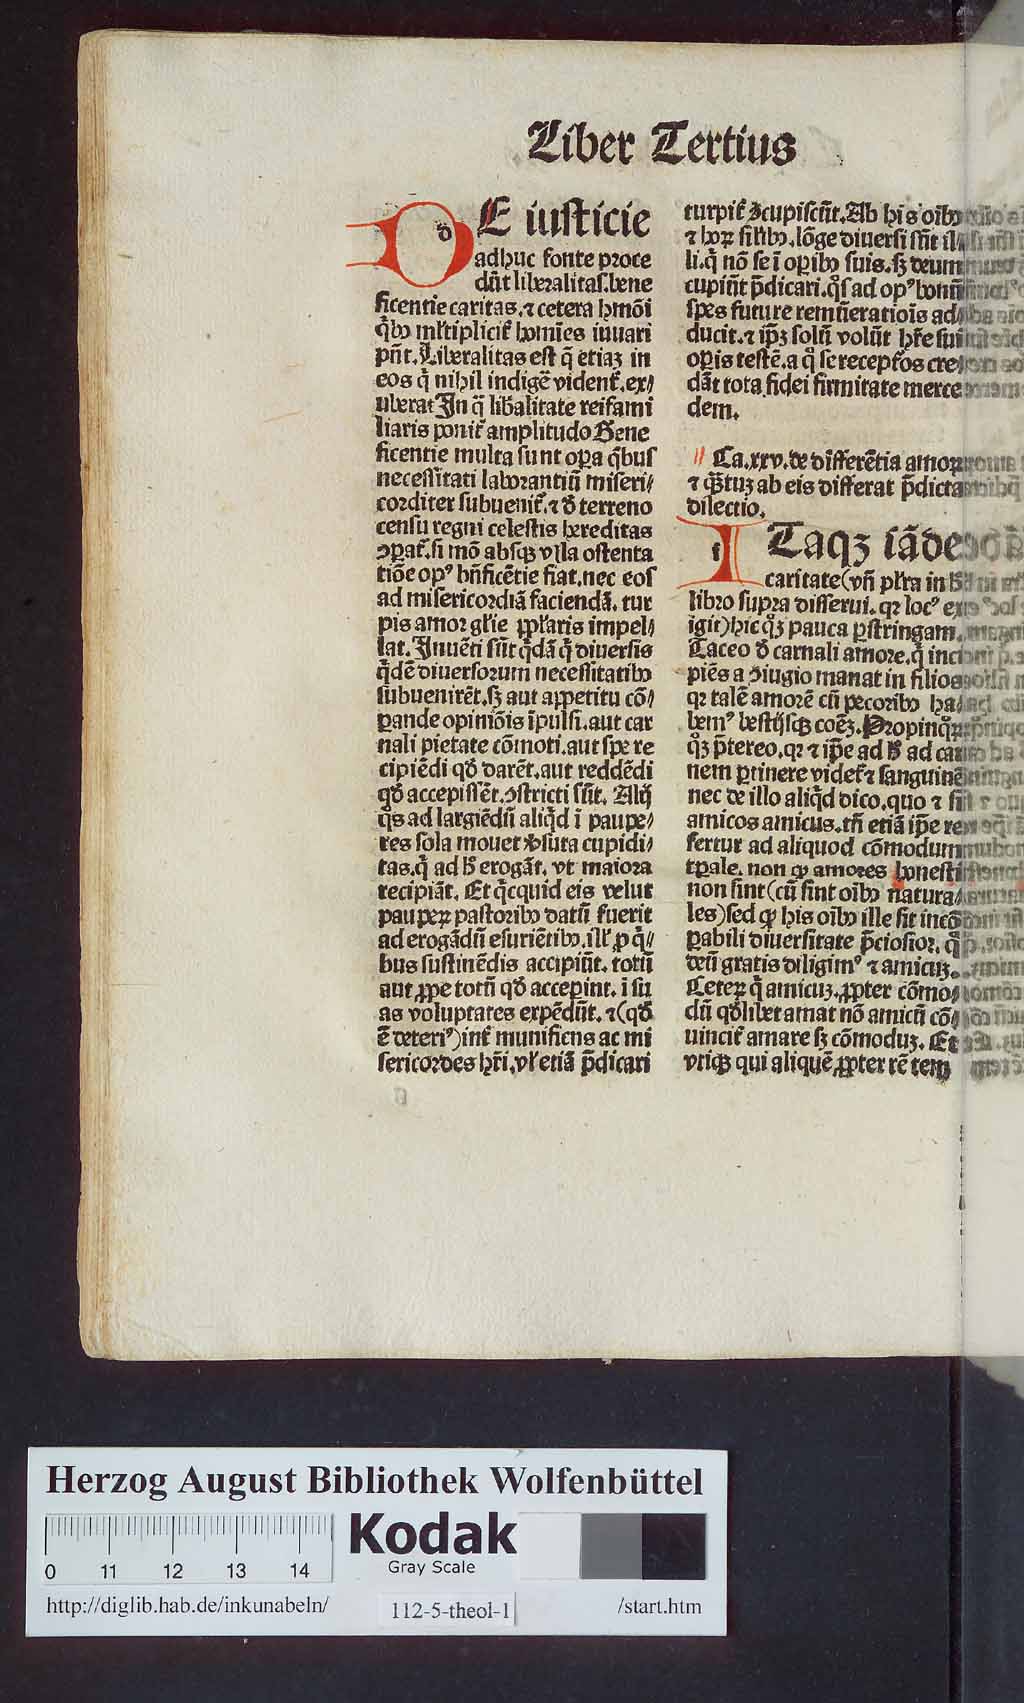 Liber Tertius
DE iusticie
adhuc fonte proce
dūt liberalitas.bene
ficentie caritas.⁊ cetera hmōi
q̄bꝰ mltiplicit̄ homīes iuuari
pn̄t. Liberalitas est q̄ etiaꝫ in
eos q̄ nihil indigē vident̄.ex/
uberat In q̄ libalitate reifami
liaris ponit̄ amplitudo Bene
ficentie multa sunt oꝑa q̄bus
necessitati laborantiū miseri/
corditer subuenit̄.⁊ đ terreno
censu regni celestis hereditas
ꝯꝑat̄.si mō absqꝫ vlla ostenta
tiōe opꝰ bn̄ficētie fiat.nec eos
ad misericordiā faciendā. tur
pis amor gl̄ie ꝓpl̄aris impel/
lat. Inuēti sūt q̄dā q̄ diuersis
q̄dē diuersorum necessitatibꝰ
subuenirēt.sꝫ aut appetitu cō/
ꝑande opiniōis īpulsi.aut car
nali pietate cōmoti.aut spe re
cipiēdi qđ darēt.aut reddēdi
qđ accepissēt.ꝯstricti sūt. Aliq̄
q̄s ad largiēdū aliq̄d ī paupe/
res sola mouet ꝓfusa cupidi/
tas.q̄ ad ħ erogāt. vt maiora
recipiāt. Et q̄cquid eis velut
pauperꝝ pastoribꝰ datū fuerit
ad erogādū esuriētibꝰ.ill̄ ꝓ q̄/
bus sustinēdis accipiūt. totū
aut ꝓpe totū qđ acceperint. ī su
as voluptates expēdūt. ⁊(qđ
ē deteriꝰ)int̄ munificus ac mi
sericordes hr̄i.vl̄ etiā p̄dicari
turpit̄ ꝯcupiscūt.Ab his oībꝰ
⁊ hoꝝ silibꝰ.lōge diuersi sūt il/
li.q̄ nō se ī oꝑibꝰ suis.sꝫ deum
cupiūt p̄dicari.q̄s ad opꝰ bonū
spes future remūeratiōis ad/
ducit.⁊ ipꝫ solū volūt hr̄e sui
oꝑis testē.a q̄ se recept̄os cre/
dāt tota fidei firmitate merce
dem.
Ca.xxv.de differētia amoꝝ
⁊ q̄tuꝫ ab eis differat p̄dicta
dilectio.
ITaqꝫ iā de
caritate(vn̄ pl̄ra in ħ
libro supra disserui. qꝛ locꝰ ex
igit)hic qꝫ pauca ꝑstringam.
Taceo đ carnali amore.q̄ inci
piēs a ꝯiugio manat in filios
qꝛ talē amorē cū pecoribꝰ ha/
bemꝰ bestijsqꝫ coēꝫ.Propinq̄ꝝ
qꝫ p̄tereo.qꝛ ⁊ ip̄e ad ħ ad car
nem ꝑtinere videt̄ ⁊ sanguinē
nec de illo aliq̄d dico.quo ⁊ fil
amicos amicus.tn̄ etiā ip̄e re
fertur ad aliquod cōmodum
tꝑale. non ꝙ amores honesti
non sint(cū sint oībꝰ natura/
les)sed ꝙ his oībꝰ ille sit incō
ꝑabili diuersitate p̄ciosior. q̄
deū gratis diligimꝰ ⁊ amicuꝫ.
Ceterꝝ q̄ amicuꝫ.ꝓpter cōmo/
dū qđlibet amat nō amicū cō/
uincit̄ amare sꝫ cōmoduꝫ. Et
vtiqꝫ qui aliquē ꝓpter rē tem
Herzog August Bibliothek Wolfenbüttel
0 11 12 13 14
Kodak
Gray Scale
http://diglib.hab.de/inkunabeln/
112-5-theol-1
/start.htm